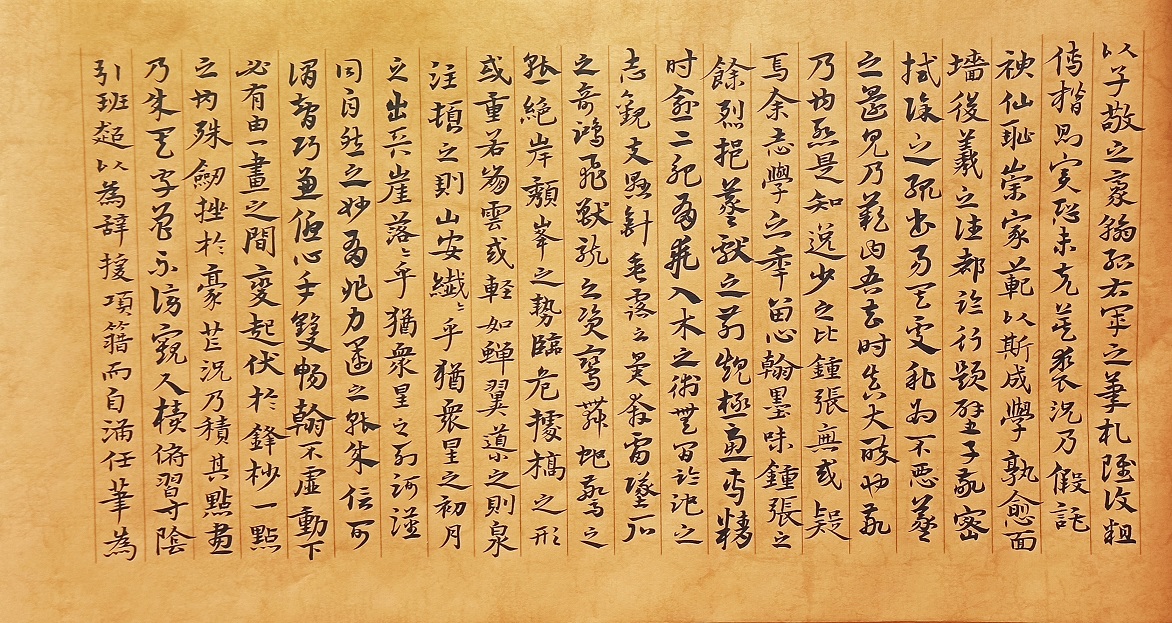 以子敬之豪翰紹右軍之筆札雖復粗
傳楷則實恐未克箕裘況乃假託
神仙耻崇家範以斯成學孰愈面
墻後羲之往都臨行題壁子敬密
拭除之輒書易其處私為不惡羲
之還見乃歎曰吾去時真大醉也敬
乃內慙是知逸少之比鍾張無或疑
焉余志學之年留心翰墨味鍾張之
餘烈挹羲獻之前規極慮專精
時逾二紀有乖入木之術無間臨池之
志觀夫懸針垂露之異奔雷墜石
之奇鴻飛獸駭之資鸞舞蛇驚之
態絕岸頹峯之勢臨危據槁之形
或重若崩雲或輕如蟬翼導之則泉
注頓之則山安纖〻乎猶眾星之初月
之出天崖落〻乎猶眾星之列河漢
同自然之妙有非力運之能成信可
謂智巧兼優心手雙暢翰不虛動下
必有由一畫之間變起伏於鋒杪一點
之內殊衄挫於豪芒況乃積其點畫
乃成其字曾不傍窺尺牘俯習寸陰
引班超以為辭援項籍而自滿任筆為